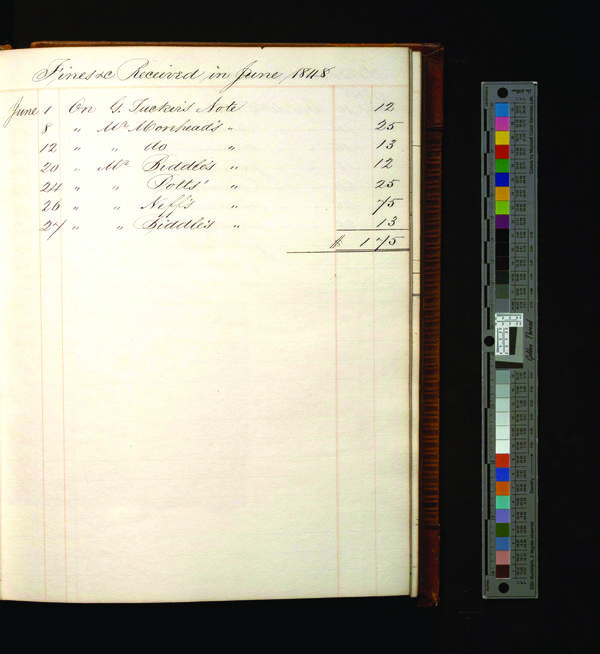 Fines &c Received in June 1848
June 1 On G. Tucker's Note 12
8 " Mr Morehead's " 25
12 " " do " 13
20 " Mr Biddle's " 12
24 " " Potts' " 25
26 " " Neff's " 75
27 " " Biddle's " 13
$ 1 75